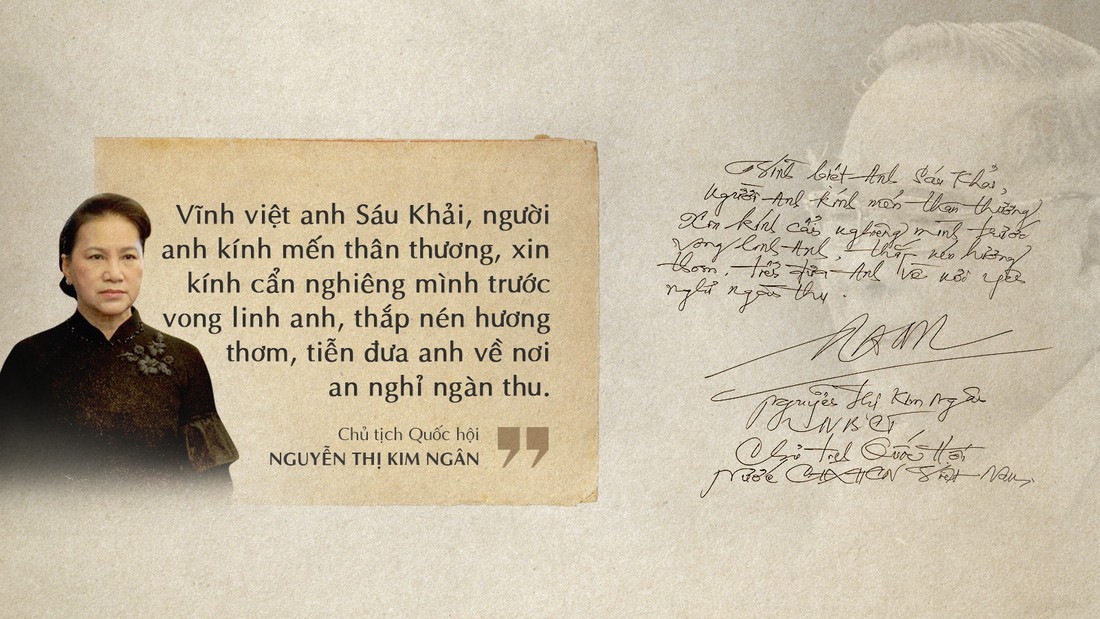 Vĩnh việt anh Sáu Khải, người
anh kính mến thân thương, xin
kính cẩn nghiêng mình trước
vong linh anh, thắp nén hương
thơm, tiễn đưa anh về nơi
an nghỉ ngàn thu.
Chủ tịch Quốc hội
NGUYỄN THỊ KIM NGÂN
Vĩnh biệt Anh Sáu Khải,
người Anh kính mến thân thương
Xin kính cẩn nghiêng mình trước
vong linh Anh, thắp nén hương
thơm, tiễn đưa Anh về nơi yên
nghỉ ngàn thu.
Nguyễn Thị Kim Ngân
UVBCT
Chủ tịch Quốc Hội
Nước CHXHCN Việt Nam.